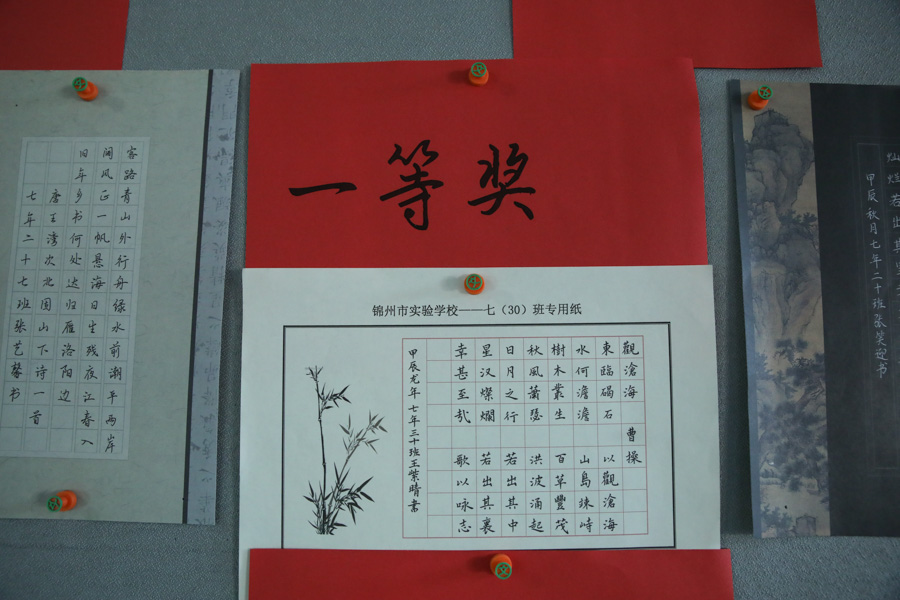 客路青山外行舟绿水前潮平两岸
阔风正一帆悬海日生残夜江春入
旧年乡书何处达归雁洛阳边
唐王湾次北固山下诗一首
七年二十七班张艺馨书
一等奖
锦州市实验学校——七（30）班专用纸
觀滄海 曹操
東臨碣石 以觀滄海
水何澹澹 山島竦峙
樹木叢生 百草豐茂
秋風蕭瑟 洪波涌起
日月之行 若出其中
星汉燦爛 若出其裏
幸甚至哉 歌以咏志
甲辰龙年 七年三十班王紫晴書
灿烂若出其
甲辰秋月七年二十班张笑迎书